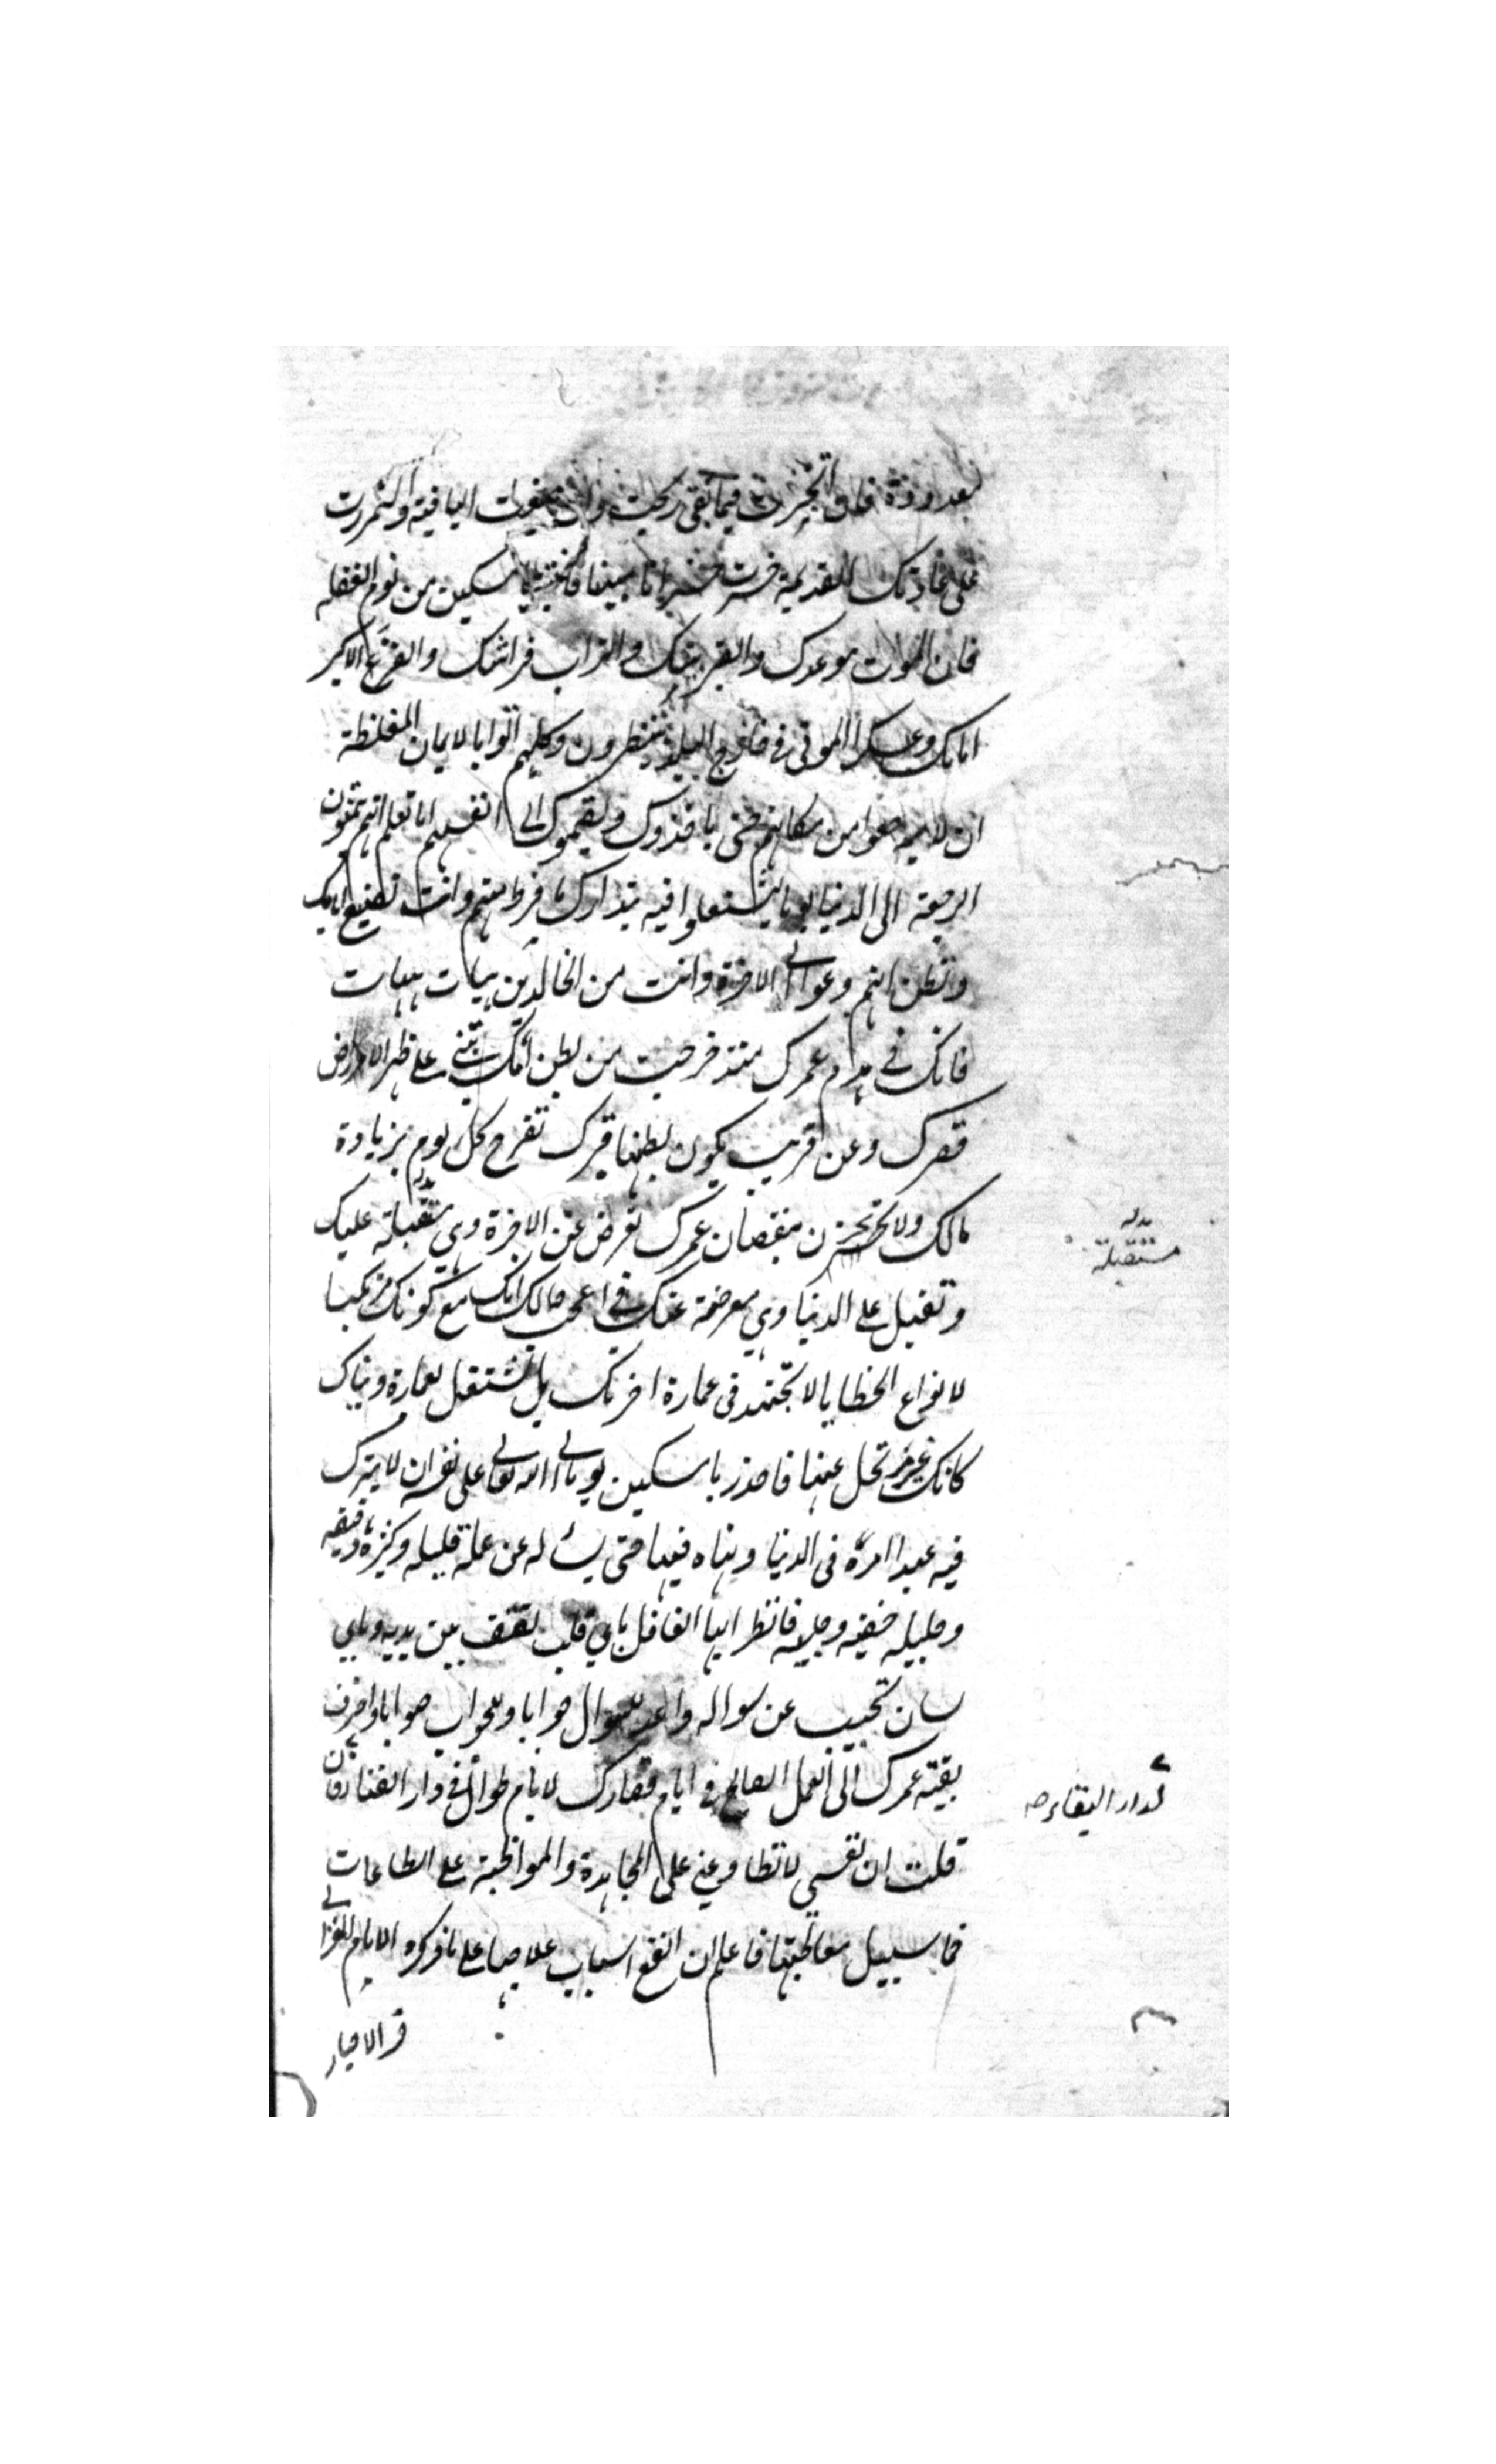 بعد وفرة فان اتجرت فيما بقى ربحت وان ضيعت الباقية واستمررت
على عادتك القديمة خسرت خسرانا مبينا فانتبه يا مسكين من نوم الغفلة
فان الموت موعدك والقبر بيتك والتراب فراشك والفزع الاكبر
امامك وعسكر الموتى في خارج البلد ينتظرون وكلهم الوا بالايمان المغلظة
ان لا يبرحوا من مكانهم حتى ياخذوك ويضموك الى انفسهم اما تعلم انهم يتمنون
الرجعة الى الدنيا يوما ليشتغلوا فيه بتدارك ما فرط منهم وانت تضيع ايامك
وتظن انهم دعوا الى الاخرة وانت من الخالدين هيهات هيهات
فانك في هدم عمرك منذ خرجت من بطن امك تبني على ظهر الارض
قصرك وعن قريب يكون بطنها قبرك تفرح كل يوم بزيادة
مالك ولا تحزن بنقصان عمرك تعرض عن الاخرة وهي مقبلة عليك
وتقبل على الدنيا وهي معرضة عنك فما اعجب حالك انك مع كونك مرتكبا
لانواع الخطايا لا تجتهد في عمارة اخرتك بل تشتغل بعمارة دنياك
كانك غير مرتحل عنها فاحذر يا مسكين يوما الى الله تعالى على نفسه ان لا يترك
فيه عبدا امره في الدنيا ونهاه فيها حتى يسأله عن عمله قليله وكثيره دقيقه
وجليله خفيه وجليه فانظر ايها الغافل باي قلب تقف بين يديه وباي
لسان تجيب عن سواله واعد للسوال جوابا وللجواب صوابا واصرف
بقية عمرك الى العمل الصالح في ايام قصارك لايام طوال في دار الفناء فان
قلت ان نفسي لا تطاوعني على المجاهدة والمواظبة على الطاعات
فما سبيل معالجتها فاعلم ان انفع اسباب علاجها على ما ذكره الامام الغزالي
مستقبلة
لدار البقاء صح